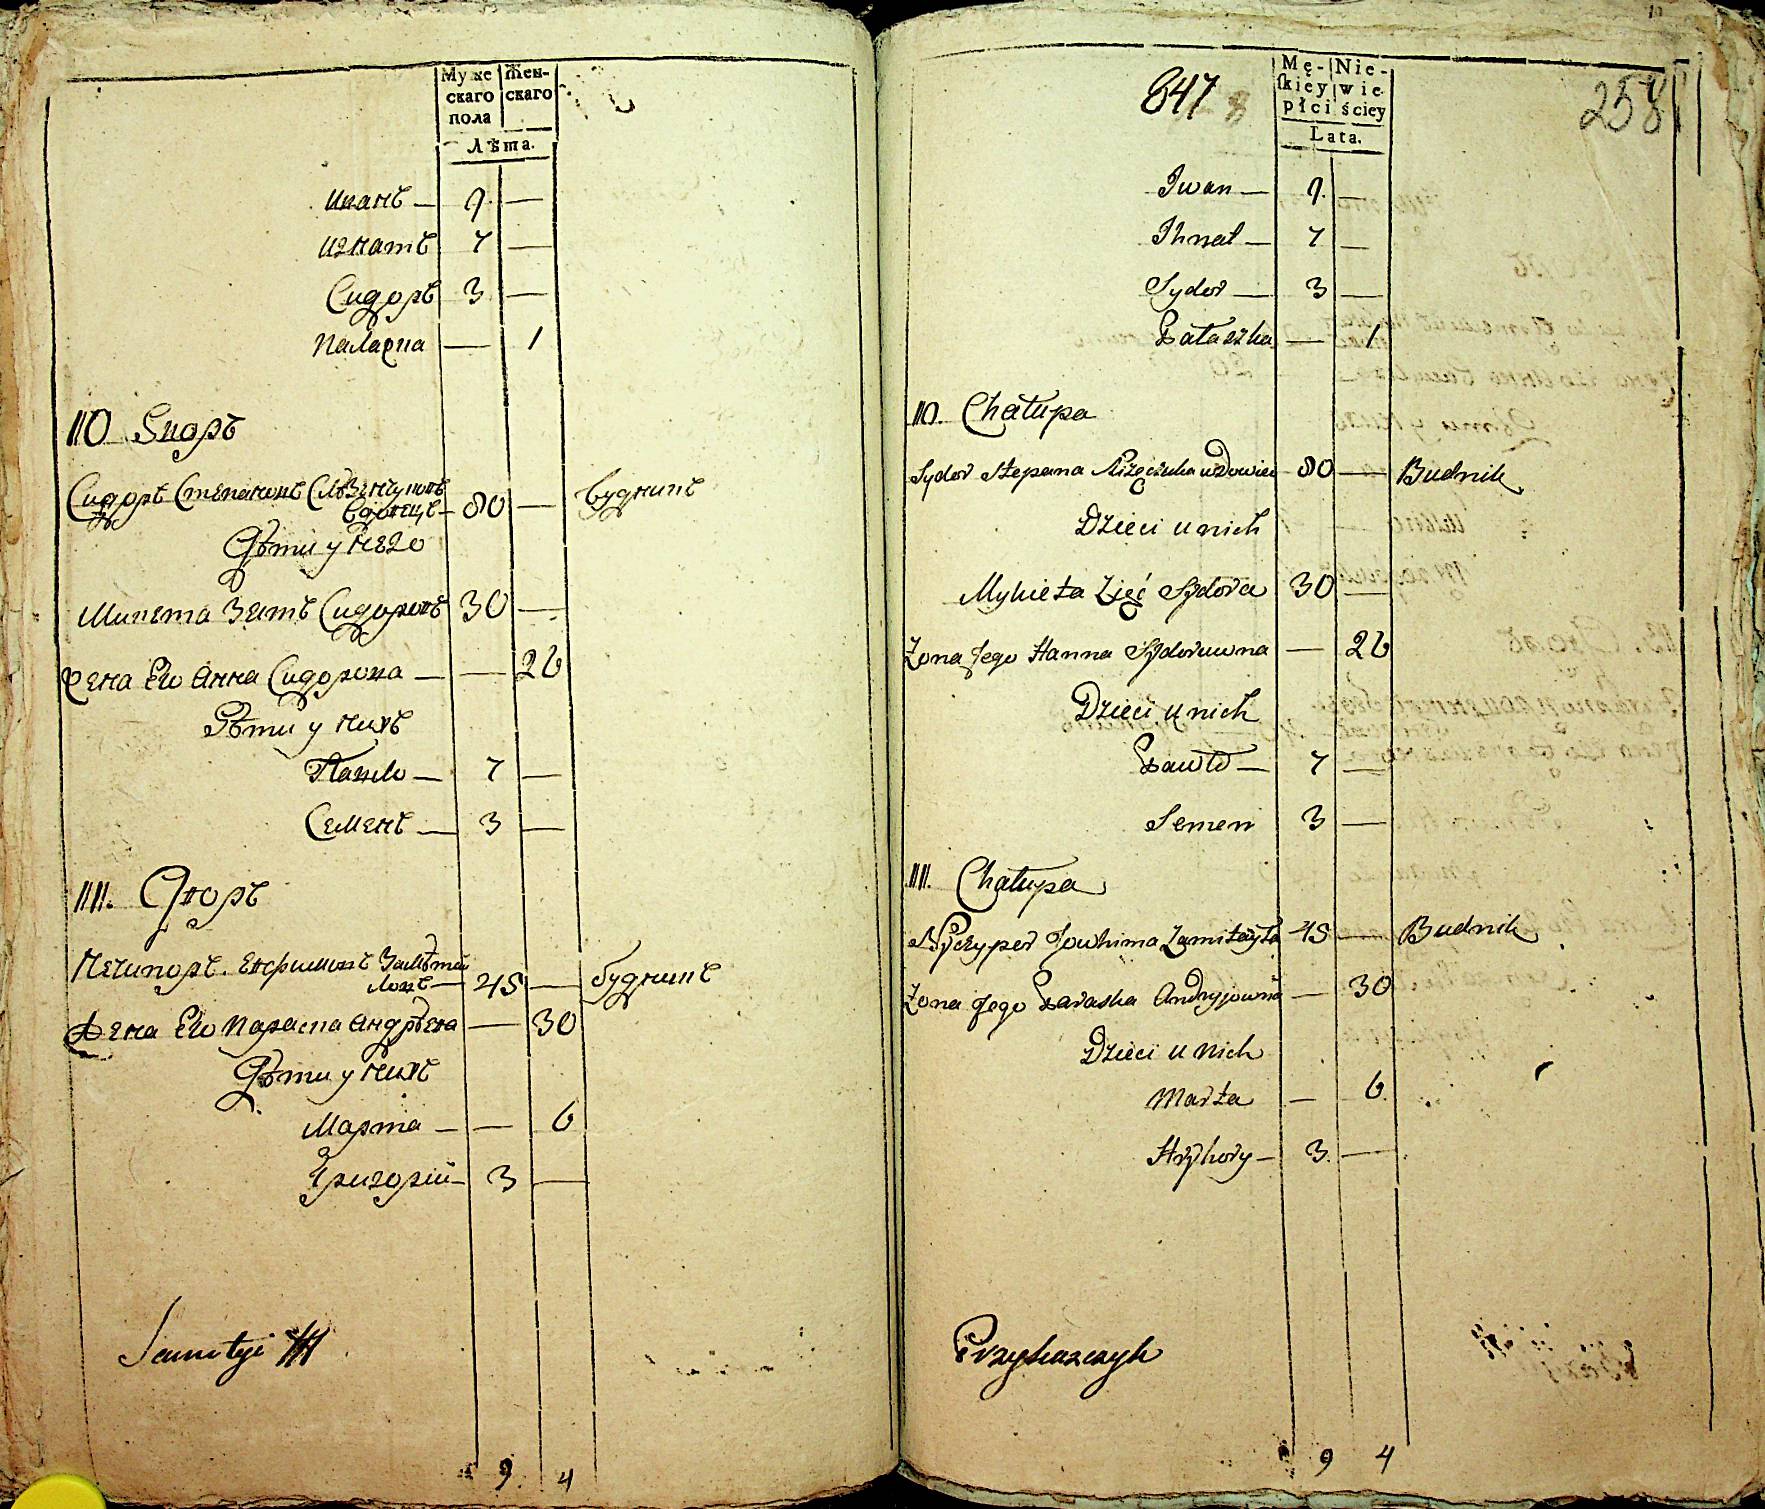 Мужескаго пола Женскаго
Лѣта.
Иванъ — 9. —
Игнатъ 7 —
Сидоръ 3 —
Палажка — 1
110 Дворъ
Сидоръ Степановъ
Вдовецъ — 80 — Будникъ
Дѣти у него
Микита Зять Сидоровъ 30 —
Жена Его Анна Сидорова — — 26
Дѣти у нихъ
Павло — 7 —
Семенъ — 3 —
111. Дворъ
Нечипоръ Евфимовъ Замѣтай
ловъ — 45 — Будникъ
Жена Его Параска Андрѣева — 30
Дѣти у нихъ
Марта — — 6
Григорій — 3 —
9. 4
847
258
Męskiey płci Niewieściey
Lata.
Iwan — 9. —
Ihnat — 7 —
Sydor — 3 —
Pałaszka — 1
110. Chałupa
Sydor Stepana wdowiec 80 — Budnik
Dzieci u nich
Mykieta Zięć Sydora 30 —
Żona Jego Hanna Sydoruwna — 26
Dzieci u nich
Pawło — 7 —
Semen 3 —
111. Chałupa
Nyczyper Jowhima Zamitayła 45 — Budnik
Żona Jego Paraska Andryjowna — 30
Dzieci u nich
Marta — 6
Hryhory — 3. —
9 4